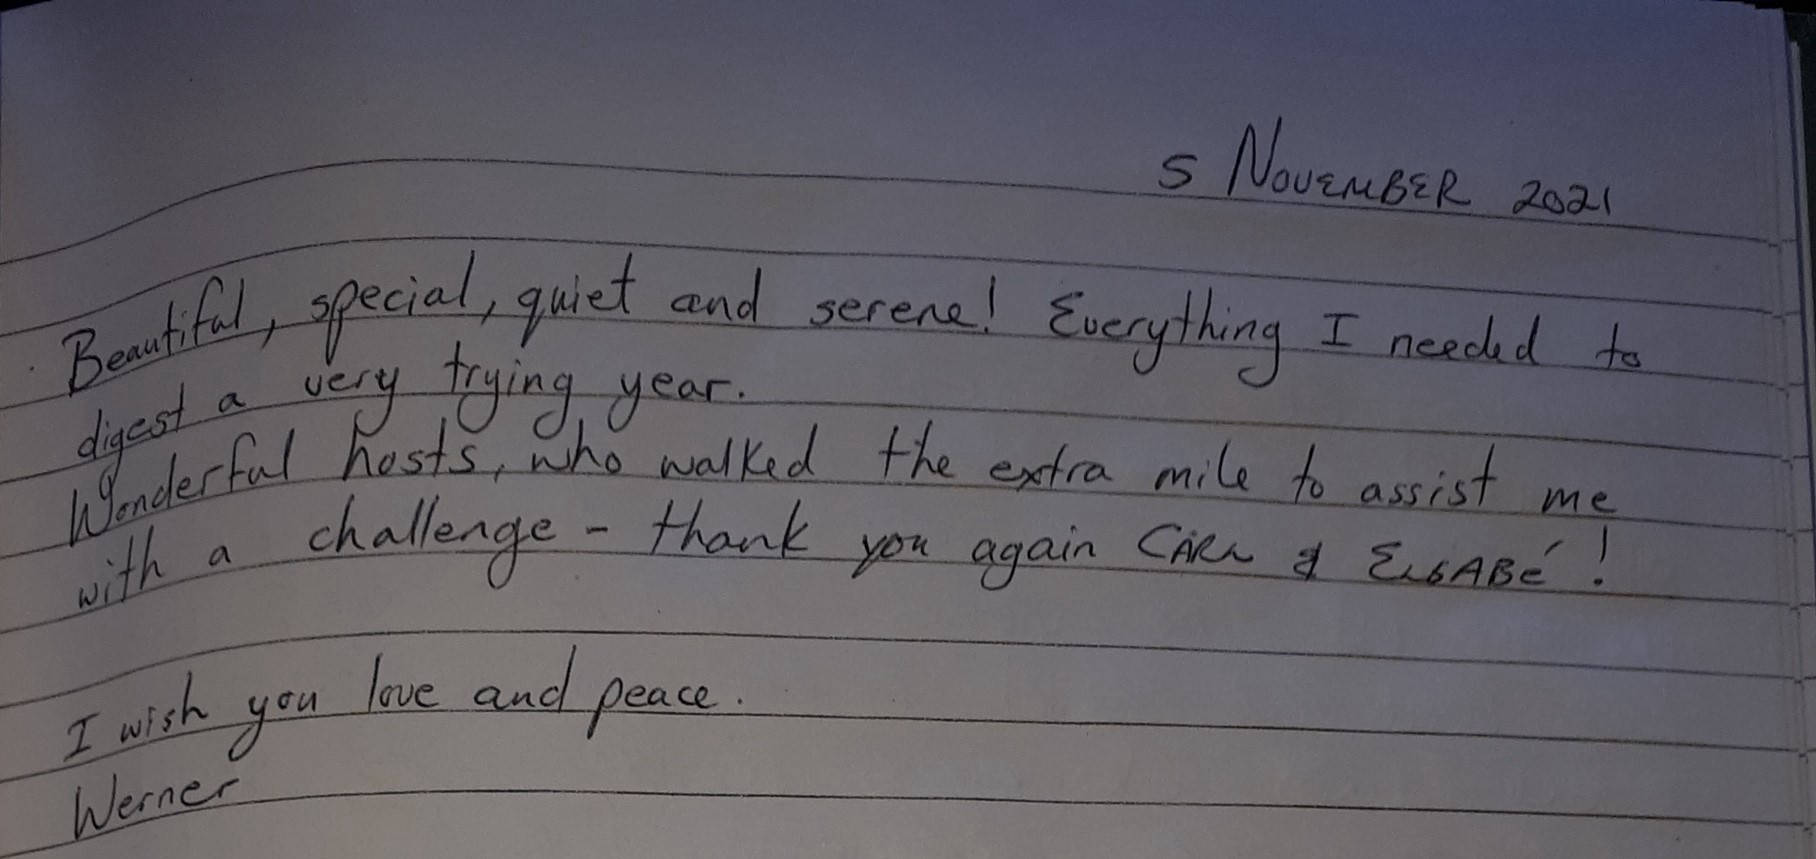 5 NOVEMBER 2021
Beautiful, special, quiet and serene! Everything I needed to
digest a very trying year.
Wonderful hosts, who walked the extra mile to assist me
with a challenge - thank you again CARL & ELSABÉ!
I wish you love and peace.
Werner